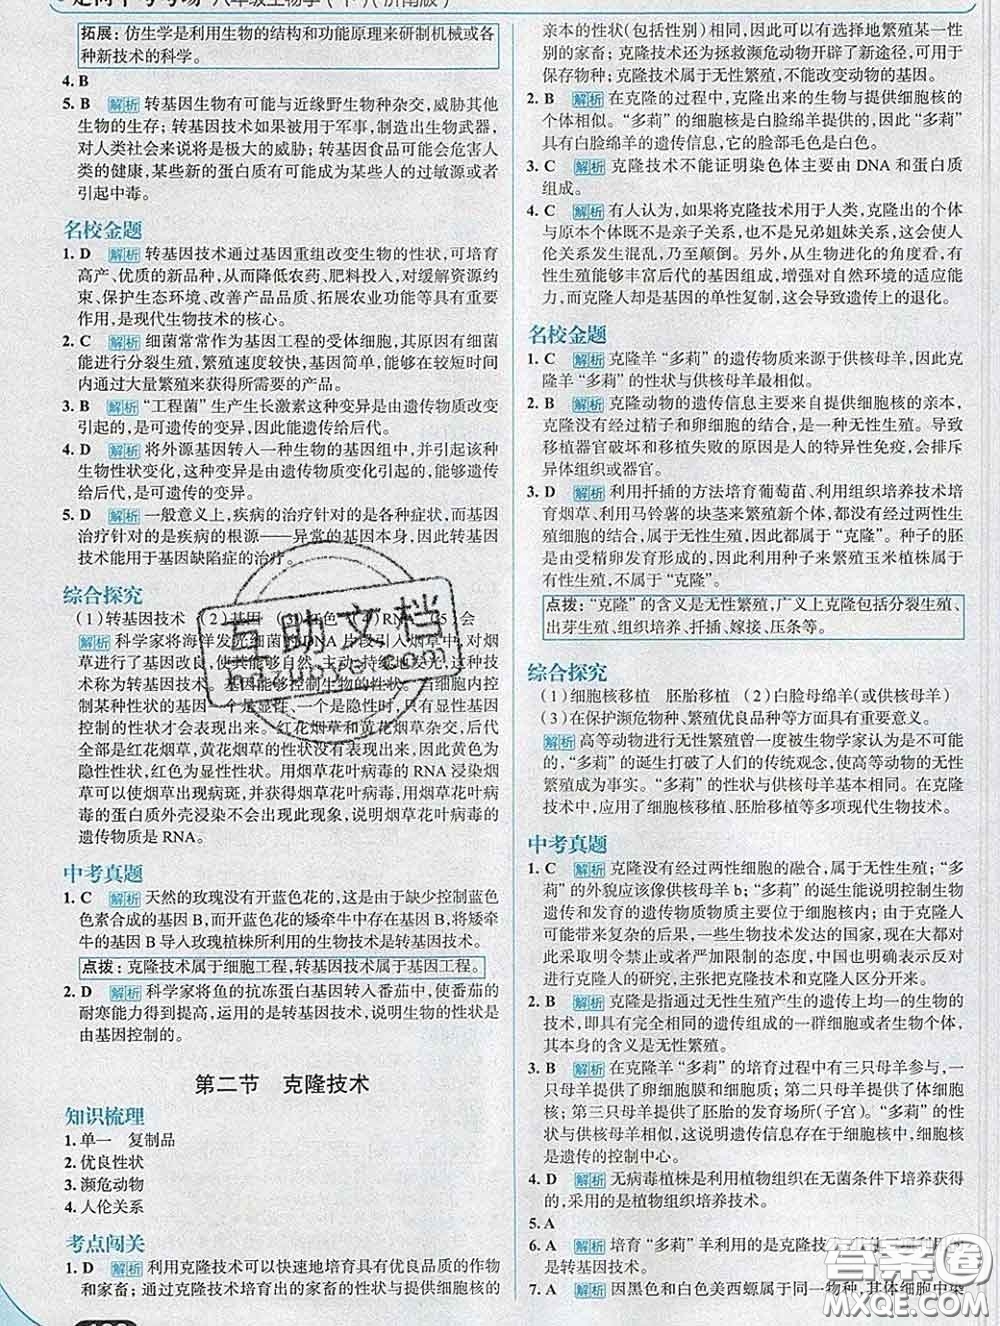 走向中考考场 八年级生物学(下)(济南版)
拓展:仿生学是利用生物的结构和功能原理来研制机械或各
种新技术的科学。
4. B
5. B 解析 转基因生物有可能与近缘野生物种杂交,威胁其他
生物的生存;转基因技术如果被用于军事,制造出生物武器,
对人类社会来说将是极大的威胁;转基因食品可能会危害人
类的健康,某些新的蛋白质有可能成为某些人的过敏源或者
引起中毒。
名校金题
1. D 解析 转基因技术通过基因重组改变生物的性状,可培育
高产、优质的新品种,从而降低农药、肥料投入,对缓解资源约
束、保护生态环境、改善产品品质、拓展农业功能等具有重要
作用,是现代生物技术的核心。
2. C 解析 细菌常常作为基因工程的受体细胞,其原因有细菌
能进行分裂生殖,繁殖速度较快,基因简单,能够在较短时间
内通过大量繁殖来获得所需要的产品。
3. B 解析 “工程菌”生产生长激素这种变异是由遗传物质改变
引起的,是可遗传的变异,因此能遗传给后代。
4. D 解析 将外源基因转入一种生物的基因组中,并引起该种
生物性状变化,这种变异是由遗传物质变化引起的,能够遗传
给后代,是可遗传的变异。
5. D 解析 一般意义上,疾病的治疗针对的是各种症状,而基因
治疗针对的是疾病的根源——异常的基因本身,因此转基因
技术能用于基因缺陷症的治疗。
综合探究
(1)转基因技术 (2)基因 (3)红色 (4)RNA (5)会
解析 科学家将海洋发光细菌的DNA片段引入烟草中,对烟
草进行了基因改良,使其能够自然、主动、持续地发光,这种技
术称为转基因技术。基因能够控制生物的性状。当细胞内控
制某种性状的基因一个是显性、一个是隐性时,只有显性基因
控制的性状才会表现出来。红花烟草和黄花烟草杂交,后代
全部是红花烟草,黄花烟草的性状没有表现出来,因此黄色为
隐性性状,红色为显性性状。用烟草花叶病毒的RNA浸染烟
草可以使烟草出现病斑,并获得烟草花叶病毒,而烟草花叶病
毒的蛋白质外壳浸染不会出现此现象,说明烟草花叶病毒的
遗传物质是RNA。
中考真题
1. C 解析 天然的玫瑰没有开蓝色花的,这是由于缺少控制蓝色
色素合成的基因B,而开蓝色花的矮牵牛中存在基因B,将矮牵
牛的基因B导入玫瑰植株所利用的生物技术是转基因技术。
点拨:克隆技术属于细胞工程,转基因技术属于基因工程。
2. D 解析 科学家将鱼的抗冻蛋白基因转入番茄中,使番茄的
耐寒能力得到提高,运用的是转基因技术,说明生物的性状是
由基因控制的。
第二节 克隆技术
知识梳理
1. 单一 复制品
2. 优良性状
3. 濒危动物
4. 人伦关系
考点闯关
1. D 解析 利用克隆技术可以快速地培育具有优良品质的作物
和家畜;通过克隆技术培育出的家畜的性状与提供细胞核的
亲本的性状(包括性别)相同,因此可以有选择地繁殖某一性
别的家畜;克隆技术还为拯救濒危动物开辟了新途径,可用于
保存物种;克隆技术属于无性繁殖,不能改变动物的基因。
2. B 解析 在克隆的过程中,克隆出来的生物与提供细胞核的
个体相似。“多莉”的细胞核是白脸绵羊提供的,因此“多莉”
具有白脸绵羊的遗传信息,它的脸部毛色是白色。
3. C 解析 克隆技术不能证明染色体主要由DNA和蛋白质
组成。
4. C 解析 有人认为,如果将克隆技术用于人类,克隆出的个体
与原本个体既不是亲子关系,也不是兄弟姐妹关系,这会使人
伦关系发生混乱,乃至颠倒。另外,从生物进化的角度看,有
性生殖能够丰富后代的基因组成,增强对自然环境的适应能
力,而克隆人却是基因的单性复制,这会导致遗传上的退化。
名校金题
1. C 解析 克隆羊“多莉”的遗传物质来源于供核母羊,因此克
隆羊“多莉”的性状与供核母羊最相似。
2. B 解析 克隆动物的遗传信息主要来自提供细胞核的亲本,
克隆没有经过精子和卵细胞的结合,是一种无性生殖。导致
移植器官破坏和移植失败的原因是人的特异性免疫,会排斥
异体组织或器官。
3. D 解析 利用扦插的方法培育葡萄苗、利用组织培养技术培
育烟草、利用马铃薯的块茎来繁殖新个体,都没有经过两性生
殖细胞的结合,属于无性生殖,因此都属于“克隆”。种子的胚
是由受精卵发育形成的,因此利用种子来繁殖玉米植株属于
有性生殖,不属于“克隆”。
点拨:“克隆”的含义是无性繁殖,广义上克隆包括分裂生殖、
出芽生殖、组织培养、扦插、嫁接、压条等。
综合探究
(1)细胞核移植 胚胎移植 (2)白脸母绵羊(或供核母羊)
(3)在保护濒危物种、繁殖优良品种等方面具有重要意义。
解析 高等动物进行无性繁殖曾一度被生物学家认为是不可能
的,“多莉”的诞生打破了人们的传统观念,使高等动物的无性
繁殖成为事实。“多莉”的性状与供核母羊基本相同。在克隆
技术中,应用了细胞核移植、胚胎移植等多项现代生物技术。
中考真题
1. C 解析 克隆没有经过两性细胞的融合,属于无性生殖;“多
莉”的外貌应该像供核母羊b;“多莉”的诞生能说明控制生物
遗传和发育的遗传物质主要位于细胞核内;由于克隆人
可能带来复杂的后果,一些生物技术发达的国家,现在大都对
此采取明令禁止或者严加限制的态度,中国也明确表示反对
进行克隆人的研究,主张把克隆技术和克隆人区分开来。
2. B 解析 克隆是指通过无性生殖产生的遗传上均一的生物的
技术,即具有完全相同的遗传组成的一群细胞或者生物个体,
其本身的含义是无性繁殖。
3. B 解析 在克隆“多莉”的培育过程中有三只母羊参与,一
只母羊提供了卵细胞膜和细胞质;第二只母羊提供了细胞
核;第三只母羊提供了胚胎的发育场所(子宫)。“多莉”性状与
供核母羊相似,这说明遗传信息存在于细胞核中,细胞核是
遗传的控制中心。
4. D 解析 无病毒植株是利用植物组织在无菌条件下培养获得
的,采用的是植物组织培养技术。
5. A
6. A 解析 培育“多莉”羊利用的是克隆技
是转基因技术。
7. A 解析 因黑色和白色美西螈属于同一物种,其体细胞中染
互助文档
hdzuoye.com
答案圈
MXQE.COM